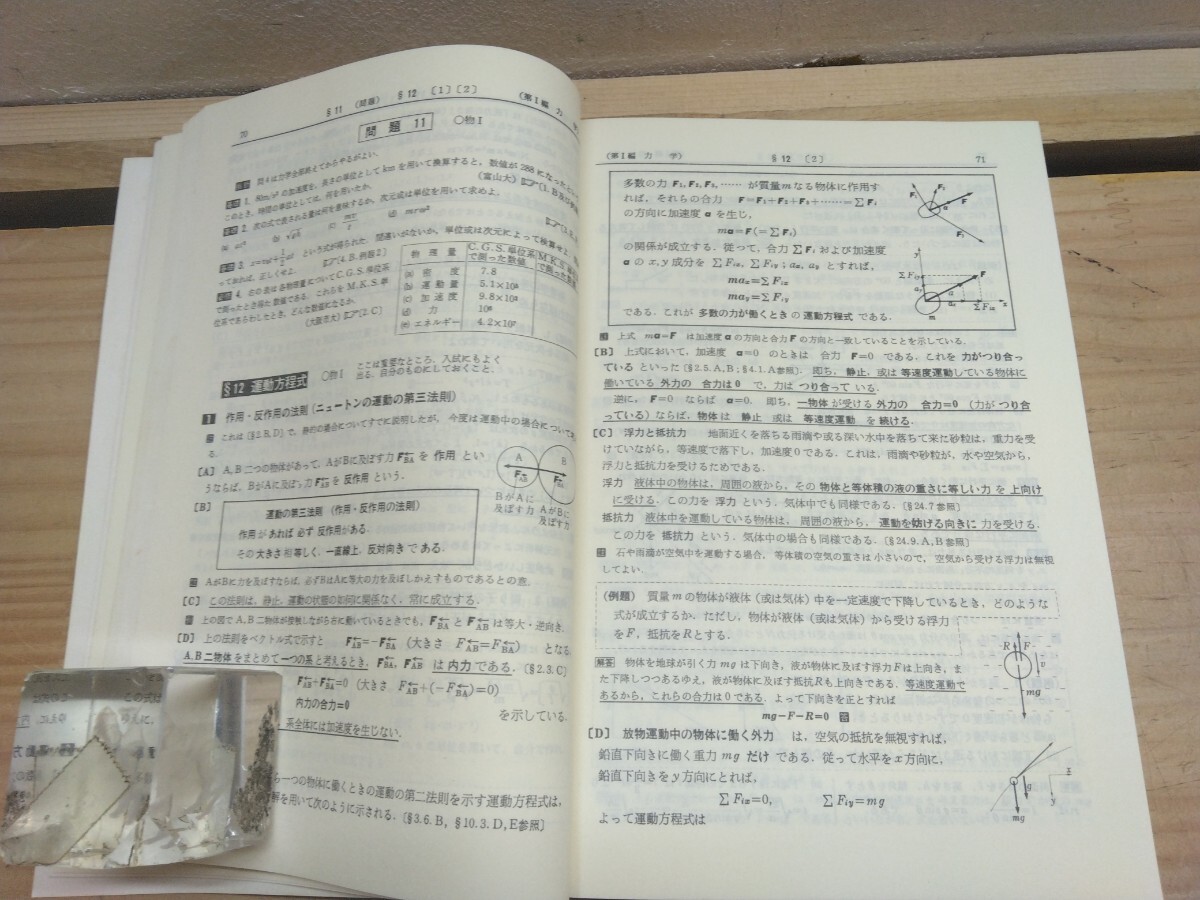 70
§11 (問題) §12 〔1〕〔2〕
(第Ⅰ編 力
問題 11
〇物Ⅰ
問4は力学全部終えてからやるがよい.
1. 80m/s² の加速度を, 長さの単位として km を用いて換算すると, 数値が 288 になったという
このとき, 時間の単位としては, 何を用いたか.
(富山大)
2. 次の式で表される量は何を意味するか. 次元或は単位を用いて求めよ.
3.
という式が得られた. 間違いがないか, 単位或は次元によって検算せよ.
って おれば, 正しくせよ.
〔4.B.例題2〕
4. 右の表は各物理量について C.G.S. 単位系
で測ったとき得た数値である. これらを M.K.S. 単
位系であらわしたとき, どんな数値になるか.
(大阪市大)
〔2.C〕
物理量 C.G.S.単位系で測った数値 M.K.S.
(a) 密度 7.8
(b) 運動量
(c) 加速度
(d) 力
(e) エネルギー
§12 運動方程式
〇物Ⅰ
ここは重要なところ. 入試にもよく
出る. 自分のものにしておくこと.
1 作用・反作用の法則 (ニュートンの運動の第三法則)
これは〔§2.B,D〕で, 静的の場合についてすでに説明したが, 今度は運動中の場合について
る.
〔A〕 A, B 二つの物体があって, A が B に及ぼす力 F_BA を 作用 とい
うならば, B が A に及ぼす力 F_AB を 反作用 という.
A B
B が A に A が B に
及ぼす力 及ぼす力
〔B〕
運動の第三法則 (作用・反作用の法則)
作用 が あれば 必ず 反作用がある.
その 大きさ 相等しく, 一直線上, 反対向き で ある.
A が B に力を及ぼすならば, 必ず B は A に等大の力を及ぼしかえすものであるとの意.
〔C〕 この法則は, 静止, 運動の状態の如何に関係なく, 常に成立する.
上の図で A, B 二物体が接触しながら右に動いているときでも, F_BA と F_AB は等大・逆向き.
〔D〕 上の法則をベクトル式で示すと F_AB=−F_BA (大きさ F_AB=F_BA) となる
A, B 二物体をまとめて一つの系と考えるとき, F_BA, F_AB は 内力である. 〔§2.3.C〕
F_AB+F_BA=0 (大きさ F_AB+(−F_BA)=0)
内力の合力=0
を示している.
系全体には加速度を生じない.
一つの物体に働くときの運動の第二法則を示す運動方程式は,
解を用いて次のように示される. 〔§3.6.B, §10.3.D,E参照〕
(第Ⅰ編 力 学)
§12 〔2〕
71
多数の力 F₁, F₂, F₃, …… が質量 m なる物体に作用す
れば, それらの合力 F=F₁+F₂+F₃+……=∑Fᵢ
の方向に加速度 a を生じ,
ma=F(=∑Fᵢ)
の関係が成立する. 従って, 合力 ∑Fᵢ および加速度
a の x, y 成分を ∑Fᵢₓ, ∑Fᵢy ; aₓ, ay とすれば,
maₓ=∑Fᵢₓ
may=∑Fᵢy
である. これが 多数の力が働くときの 運動方程式 である.
上式 ma=F は加速度 a の方向と合力 F の方向と一致していることを示している.
〔B〕 上式において, 加速度 a=0 のときは 合力 F=0 である. これを 力がつり合っ
ている といった〔§2.5.A,B ; §4.1.A参照〕. 即ち, 静止, 或は 等速度運動している物体に
働いている 外力の 合力は0 で, 力は つり合って いる.
逆に, F=0 ならば a=0. 即ち, 一物体が受ける 外力の 合力=0 (力が つり合
っている) ならば, 物体は 静止 或は 等速度運動 を続ける.
〔C〕 浮力と抵抗力 地面近くを落ちる雨滴や或る深い水中を落ちて来た砂粒は, 重力を受
けていながら, 等速度で落下し, 加速度0である. これは, 雨滴や砂粒が, 水や空気から,
浮力と抵抗力を受けるためである.
浮力 液体中の物体は, 周囲の液から, その 物体と等体積の液の重さに等しい力 を 上向け
に受ける. この力を 浮力 という. 気体中でも同様である. 〔§24.7参照〕
抵抗力 液体中を運動している物体は, 周囲の液から, 運動を妨げる向きに 力を受ける.
この力を 抵抗力 という. 気体中の場合も同様である. 〔§24.9.A,B参照〕
石や雨滴が空気中を運動する場合, 等体積の空気の重さは小さいので, 空気から受ける浮力は無視
してよい.
(例題) 質量 m の物体が液体 (或は気体) 中を一定速度で下降しているとき, どのような
式が成立するか. ただし, 物体が液体 (或は気体) から受ける浮力
を F, 抵抗を R とする.
解答 物体を地球が引く力 mg は下向き, 液が物体に及ぼす浮力 F は上向き, ま
た下降しつつあるゆえ, 液が物体に及ぼす抵抗 R も上向きである. 等速度運動で
あるから, これらの合力は0である. よって下向きを正とすれば
mg−F−R=0 答
R F v mg
〔D〕 放物運動中の物体に働く外力 は, 空気の抵抗を無視すれば,
鉛直下向きに働く重力 mg だけ である. 従って水平を x 方向に,
鉛直下向きを y 方向にとれば,
∑Fᵢₓ=0, ∑Fᵢy=mg
よって運動方程式は
g mg x y